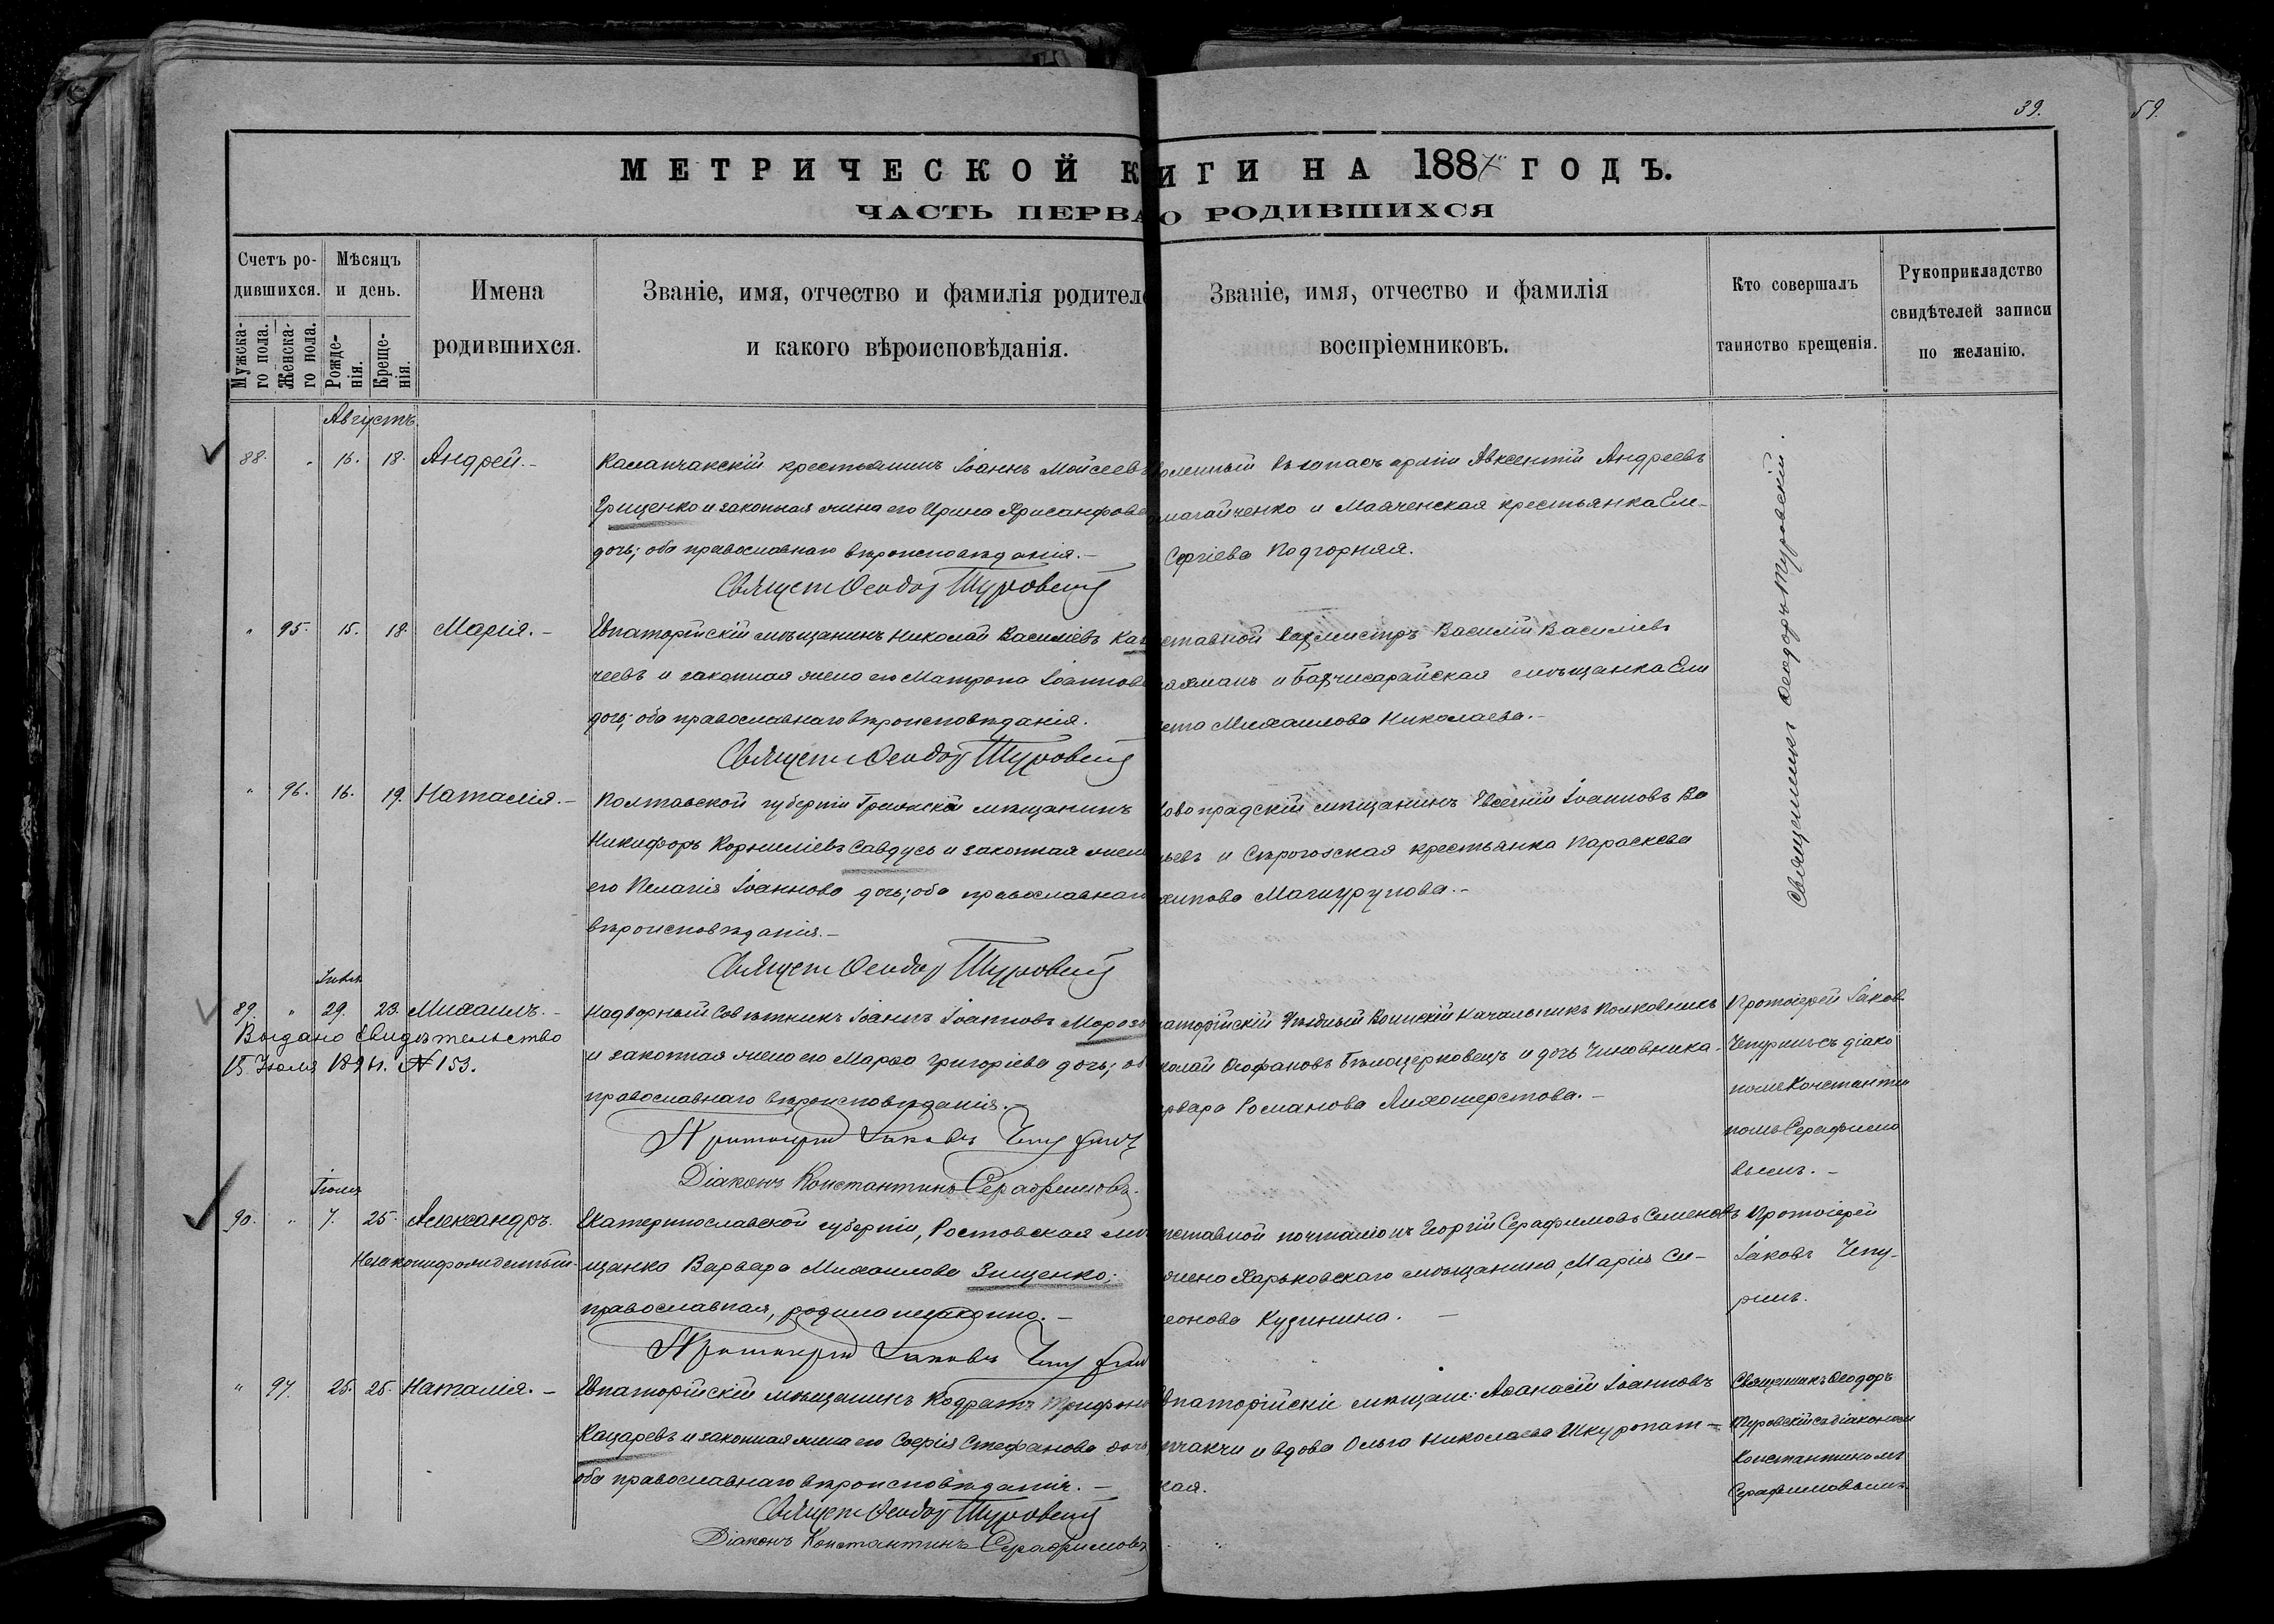 39. 59.
МЕТРИЧЕСКОЙ К ИГИ НА 1887 ГОДЪ.
ЧАСТЬ ПЕРВА О РОДИВШИХСЯ
Счетъ ро-
дившихся.
Мужска-
го пола.
Женска-
го пола.
Мѣсяцъ
и день.
Рожде-
нія.
Креще-
нія.
Имена
родившихся.
Званіе, имя, отчество и фамилія родител
и какого вѣроисповѣданія.
Званіе, имя, отчество и фамилія
воспріемниковъ.
Кто совершалъ
таинство крещенія.
Рукоприкладство
свидѣтелей записи
по желанію.
Августъ
88. " 18. Андрей.-
Каланчакскій крестьянинъ Іоаннъ Мойсеевъ
Грищенко и законная жена его Ирина Хрисанфова
дочь; оба православнаго вѣроисповѣданія.-
Священ Ѳеодор Туровскій
въ запасъ арміи Авксентій Андреевъ
и Маяченская крестьянка Еле-
Сергіева Подгорная.
Священникъ Ѳеодоръ Туровскій.
" 95. 15. 18. Марія.-
Евпаторійскій мѣщанинъ Николай Василіевъ Ка
чеевъ и законная жена его Матрона Іоаннова
дочь; оба православнаго вѣроисповѣданія.
Священ Ѳеодор Туровскій
ставной Вахмистръ Василій Василіевъ
и Бахчисарайская мѣщанка Ели
Михаилова Николаева.-
" 96. 16. 19. Наталія.-
Полтавской губерніи мѣщанинъ
Никифоръ Корниліевъ Савдусь и законная жена
его Пелагія Іоаннова дочь; оба православнаго
вѣроисповѣданія.-
Священ Ѳеодор Туровскій
градскій мѣщанинъ Евгеній Іоанновъ Ва
и Сѣрогозская крестьянка Параскева
89. " 29. 23. Михаилъ.-
Выдано свидѣтельство
15 Іюля № 153.
Надворный Совѣтникъ Іоаннъ Іоанновъ Мороз
и законная жена его Марѳа Григоріева дочь; об
православнаго вѣроисповѣданія.-
Протоіерей Іаковъ Чепурин
Діаконъ Константинъ Серафимовъ.
аторійскій Уѣздный Воинскій Начальникъ Полковникъ
колай Ѳеофановъ Бѣлоцерковецъ и дочь Чиновника
рвара Романова Лихошерстова.-
Протоіерей Іаковъ
Чепуринъ съ діако
номъ Константи
номъ Серафимо
вымъ.-
Іюля
90. " 7. 25. Александръ.
Екатеринославской губерніи, Ростовская мѣ
щанка Варвара Михаилова Зищенко;
православная, родила незаконно.-
Протоіерей Іаковъ Чепурин
тставной почталіонъ Георгій Серафимовъ Семеновъ
жена Харьковскаго мѣщанина, Марія Си-
меонова Кузинина.-
Протоіерей
Іаковъ Чепу-
ринъ.
" 97. 25. 25. Наталія.-
Евпаторійскій мѣщанинъ Кодратъ Трифоно
Кацаревъ и законная жена его Софія Стефанова дочь
оба православнаго вѣроисповѣданія.-
Священ Ѳеодор Туровскій
Діаконъ Константинъ Серафимовъ
Евпаторійскіе мѣщане: Аѳанасій Іоанновъ
и вдова Ольга Николаева Шкуропат-
кая.
Священникъ Ѳеодоръ
Туровскій съ діакономъ
Константиномъ
Серафимовымъ